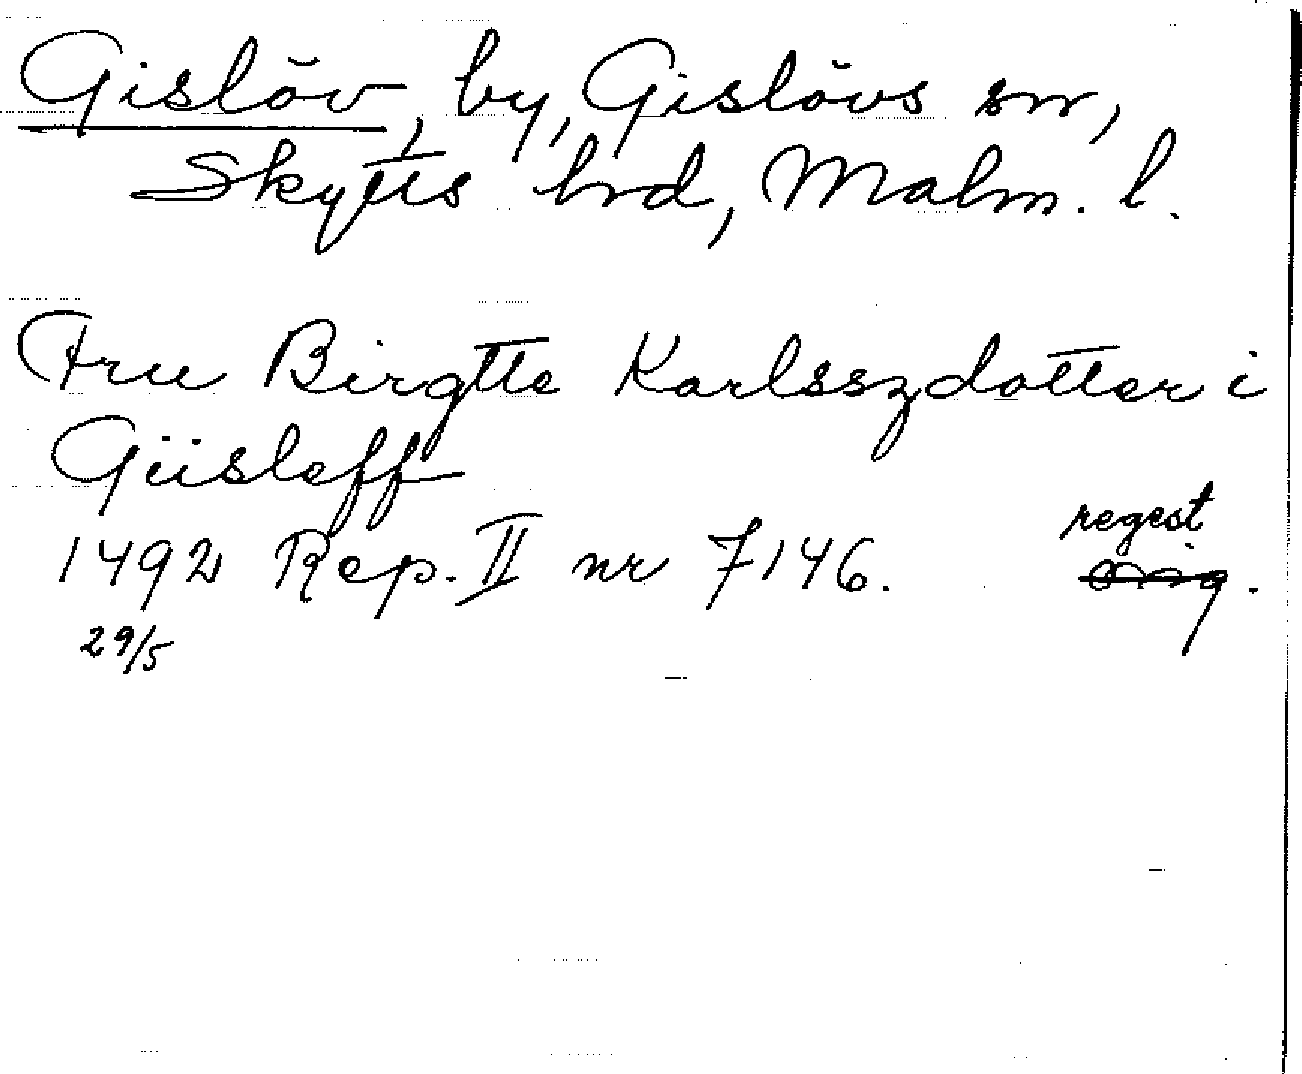 Gislöv, by, Gislövs sn,
Skytts hrd, Malm. l.
Fru Birgtte Karlsszdotter i
Giisleff
1492 Rep. II nr 7146. regest
orig.
29/5